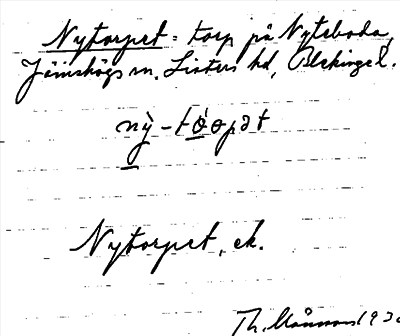 Nytorpet = torp på Nyteboda,
Jämshögs sn. Listers hd, Blekinge l.
nỳ-tòopət
Nytorpet, ek.
Th. Månsson 193